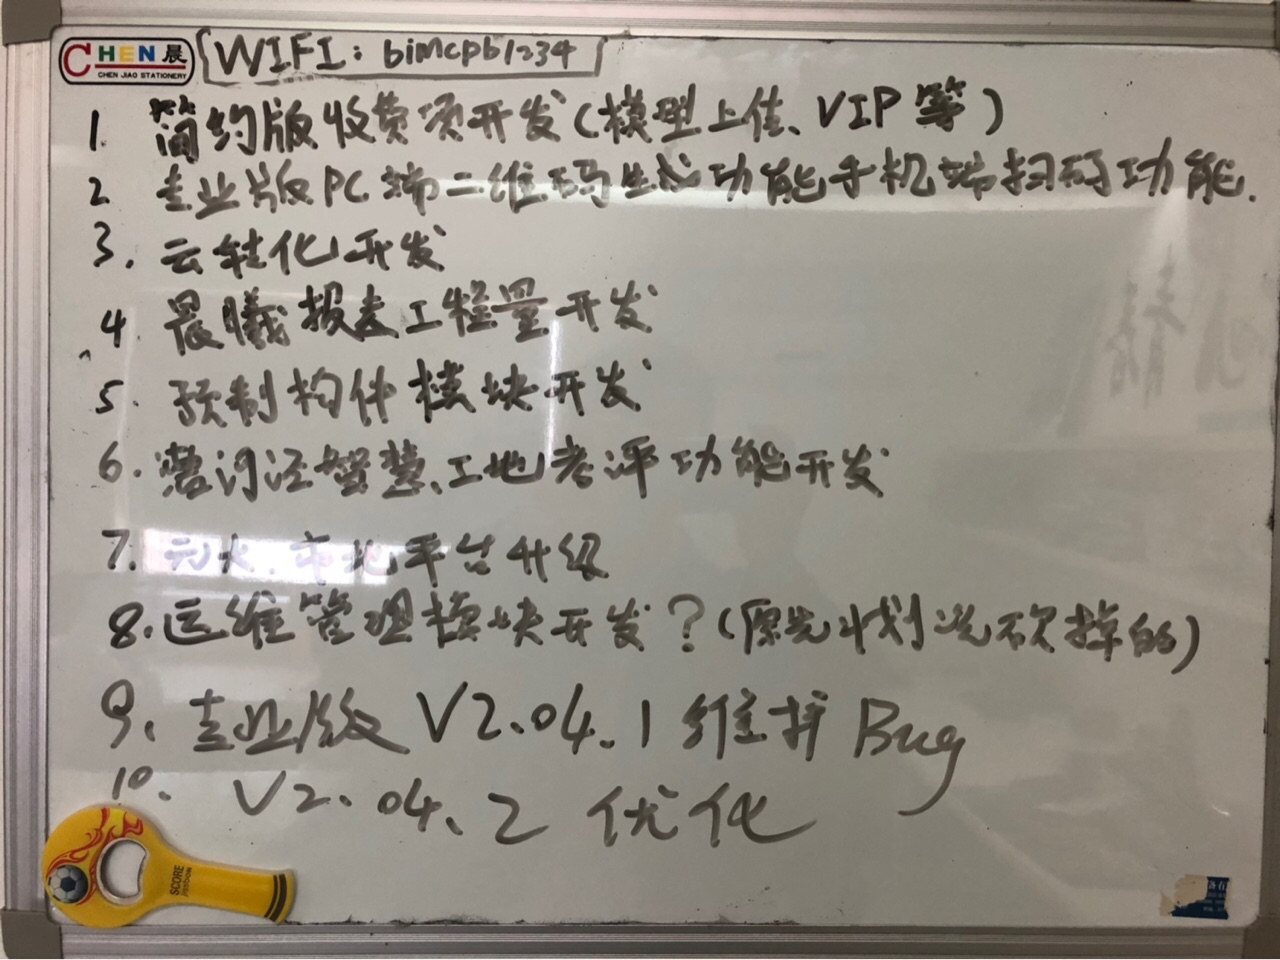 CHEN晨
CHEN JIAO STATIONERY
WIFI: bimcpb1234
1. 简约版收费项开发(模型上传、VIP等)
2 专业版PC端二维码生成功能手机端扫码功能.
3. 云转化开发
4. 晨曦报表工程量开发
5. 预制构件模块开发
6. 智慧、工地考评功能开发
7. 平台升级
8. 运维管理模块开发?(原先计划说砍掉的)
9. 专业版V2.04.1维护Bug
10. V2.04.2优化
SCORE